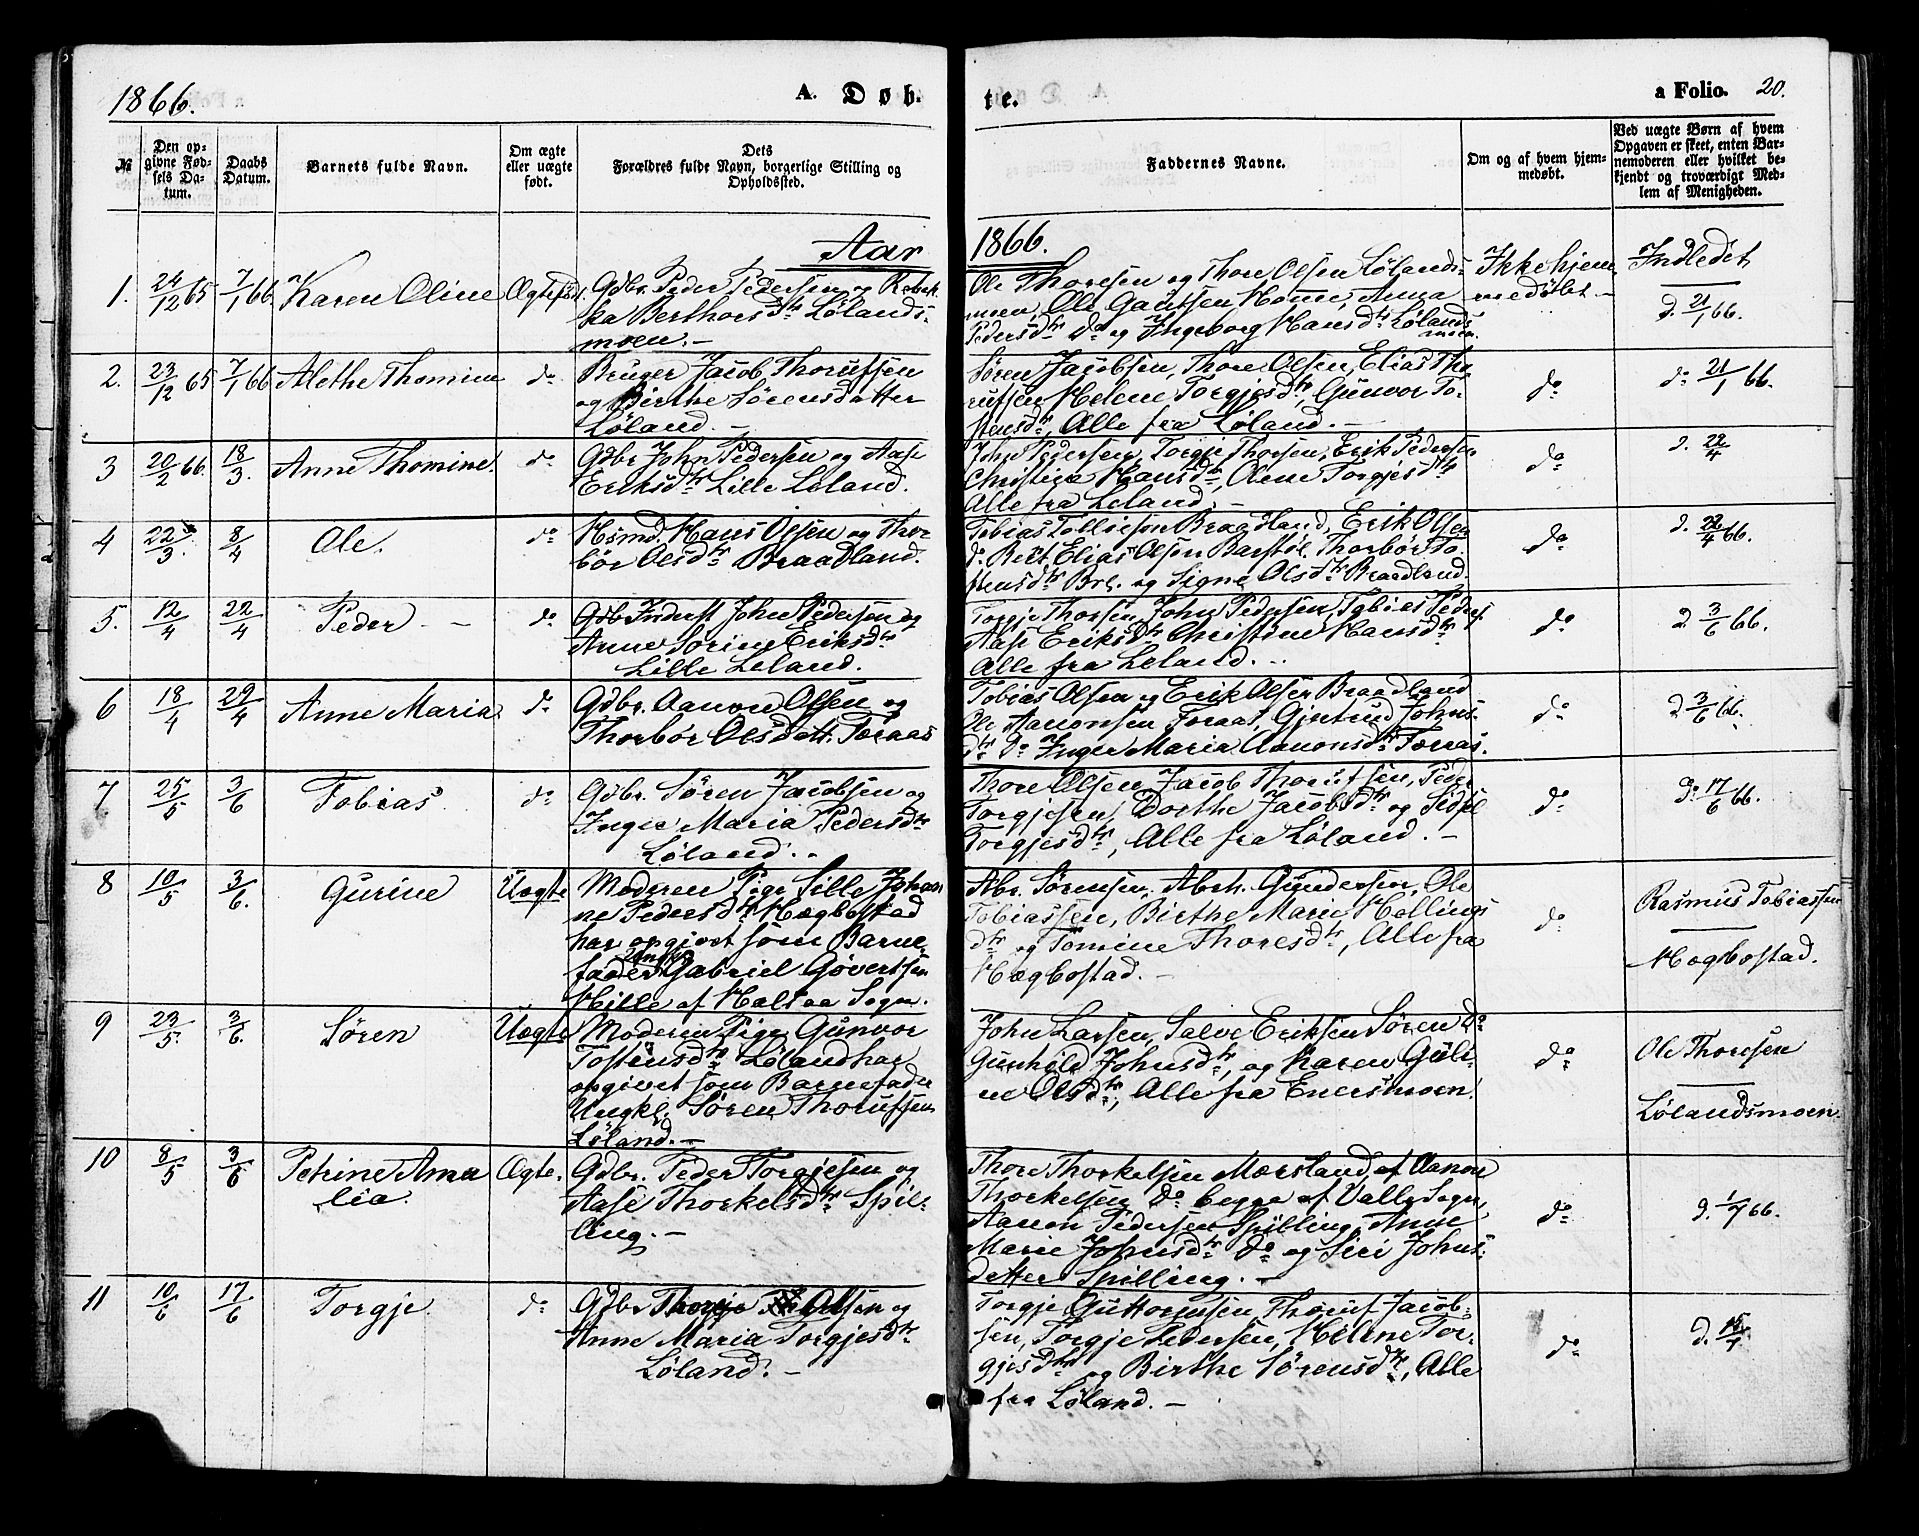 1866.
A. Døb
te.
a Folio. 20.
№
Den op-
givne Fød-
sels Da-
tum.
Daabs
Datum.
Barnets fulde Navn.
Om ægte
eller uægte
født.
Dets
Forældres fulde Navn, borgerlige Stilling og
Opholdssted.
Faddernes Navne.
Om og af hvem hjem-
medøbt.
Ved uægte Børn af hvem
Opgaven er skeet, enten Bar-
nemoderen eller hvilket be-
kjendt og troværdigt Med-
lem af Menigheden.
Aar
1866.
1. 24/12 65 7/1 66. Karen Oline Ægtefød.
Gdbr. Peder Pedersen og Rebek-
ka Berthors dtr Lølands-
moen. –
Ole Thoresen og Thore Olsen Lølands-
moen, Ole Gautsen Homme, Anna
Pedersdtr do og Ingeborg Hansdtr Lølands
moen.
Ikke hjem-
medøbt. –
Indledet
d. 21/1 66.
2. 23/12 65 7/1 66 Alethe Thomine do
Bruger Jacob Thorufsen
og Birthe Sørensdatter
Løland. –
Søren Jacobsen, Thore Olsen, Elias Tho-
rufsen Helene Torgjesdtr, Gunvor To-
stensdtr, Alle fra Løland. –
do
do 21/1 66.
3 20/2 66. 18/3. Anne Thomine. do
Gdbr. John Pedersen og Aase
Eriksdtr Lille Leland.
John Pedersen, Torgje Thorsen, Erik Pedersen
Christine Hansdtr, Olene Torgjesdtr
Alle fra Leland. –
do
d. 22/4
4 22/3. 8/4 Ole. do
Hsmd. Hans Olsen og Thor-
bør Olsdtr Braadland.
Tobias Tollefsen Braadland, Erik Olsen
Elias Olsen Barstøl, Thorbør To-
stensdtr Brl. og Signe Olsdtr Braadland.
do
d. 22/4 66.
5. 12/4 22/4 Peder – do
Gdbr. Inderst John Pedersen og
Anne Sorine Eriksdtr
Lille Leland.
Torgje Thorsen, John Pedersen, Tobias Peders.
Aase Eriksdtr Christine Hansdtr
Alle fra Leland. –
do
d. 3/6 66.
6 18/4 29/4 Anne Maria. do
Gdbr. Aanon Olsen og
Thorbør Olsdatt. Foraas
Tobias Olsen og Erik Olsen Braadland
Ole Aanonsen Foraas, Gjertrud Johns-
dtr do Inger Maria Aanonsdtr Foraas.
do
d. 3/6 66.
7 25/5 3/6 Tobias. do
Gdbr. Søren Jacobsen og
Inger Maria Pedersdtr
Løland. –
Thore Olsen, Jacob Thorufsen, Peder
Torgjesen, Dorthe Jacobsdtr og Sidsel
Torgjesdtr, Alle fra Løland. –
do
d. 17/6 66.
8 10/5 3/6. Gurine Uægte
Moderen Pige Sille Johan
ne Pedersdtr Hægbostad
har opgivet som Barne-
fader Ungkl Gabriel Govertsen
Hille af Halsaa Sogn.
Abr. Sørensen, Abrh. Gundersen, Ole
Tobiassen, Birthe Marie Hellings
dtr og Tomine Thoresdtr, Alle fra
Hægbostad. –
do
Rasmus Tobiassen
Hægbostad.
9 23/5. 3/6. Søren Uægte
Moderen Pige Gunvor
Tostensdtr Løland har
opgivet som Barnefader
Ungkl. Søren Thorufsen
Løland. –
John Larsen, Salve Eriksen Søren do
Gunhild Johnsdtr, og Karen Guli-
ne Olsdtr, Alle fra Eversmoen.
do
Ole Thoresen
Lølandsmoen.
10 8/5 3/6 Petrine Ama
lia. Ægte.
Gdbr. Peder Torgjesen og
Aase Thorkelsdtr Spil-
ling. –
Thore Thorkelsen Morsland af Aanon
Thorkelsen do begge af Valle Sogn,
Aanon Pedersen Spilling, Anne
Marie Johnsdtr do og Siri Johns-
datter Spilling. –
do
d. 1/7 66.
11 10/6 17/6 Torgje. do
Gdbr Thorgje Olsen og
Anne Maria Torgjesdtr
Løland. –
Torgje Guttormsen, Thoruf Jacob-
sen, Torgje Pedersen, Helene Tor-
gjesdtr og Birthe Sørensdtr, Alle
fra Løland. –
do
d. 15/7